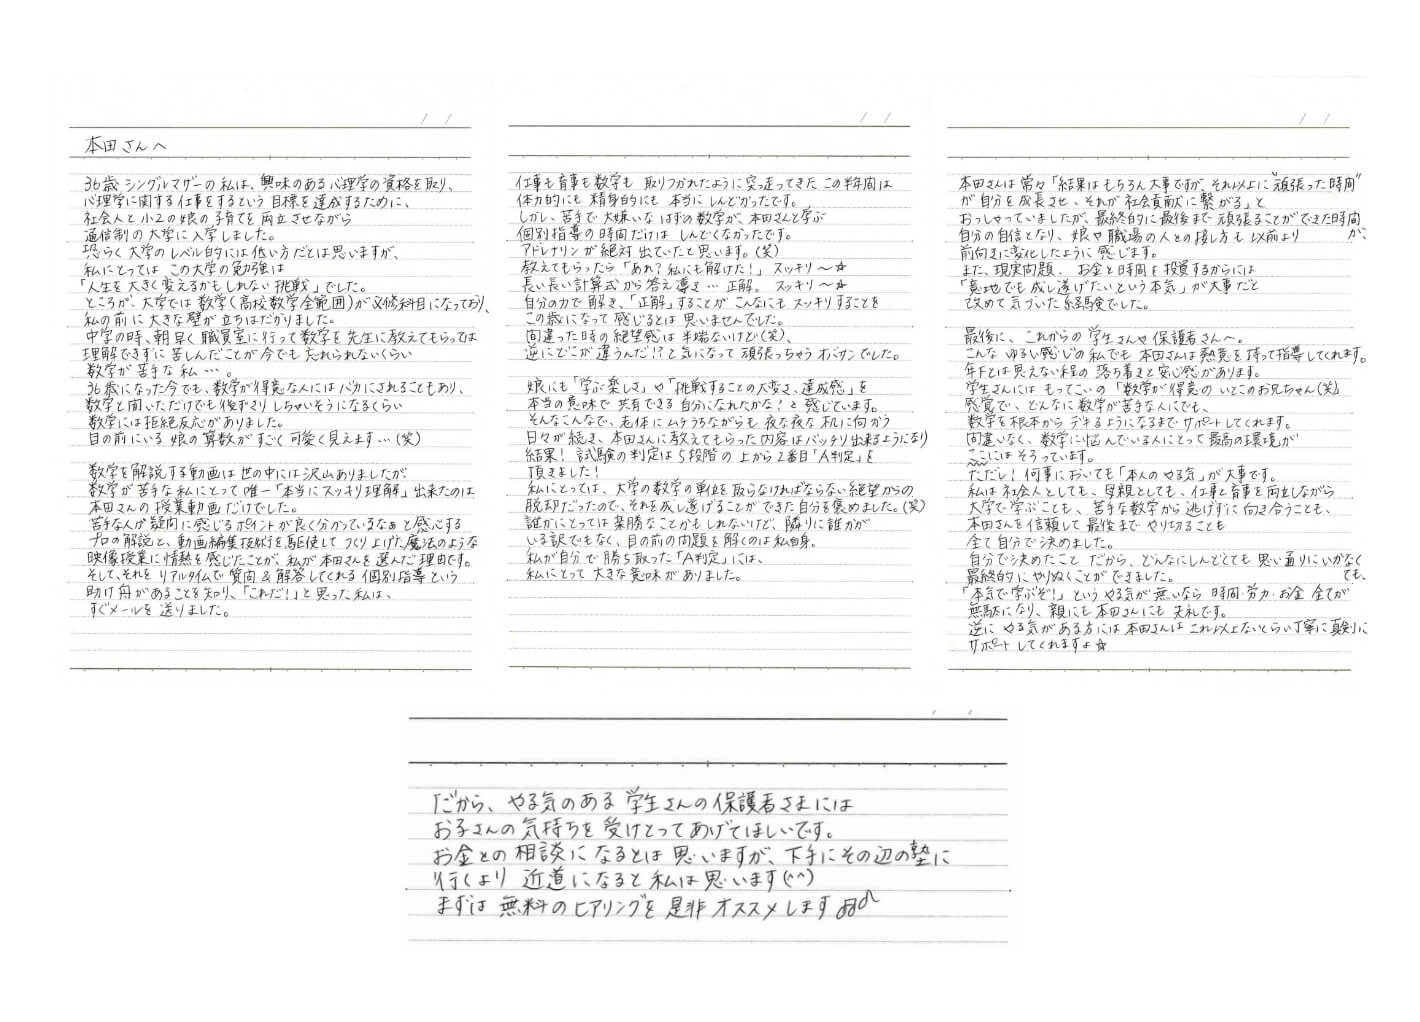 本田さんへ
36歳シングルマザーの私は、興味のある心理学の資格を取り、
心理学に関する仕事をするという目標を達成するために、
社会人と小2の娘の子育てを両立させながら
通信制の大学に入学しました。
恐らく大学のレベル的には低い方だとは思いますが、
私にとってはこの大学の勉強は
「人生を大きく変えるかもしれない挑戦」でした。
ところが、大学では数学(高校数学全範囲)が必修科目になっており、
私の前に大きな壁が立ちはだかりました。
中学の時、朝早く職員室に行って数学を先生に教えてもらっては
理解できずに苦しんだことが今でも忘れられないくらい
数学が苦手な私…。
36歳になった今でも、数学が得意な人にはバカにされることもあり、
数学と聞いただけでも後ずさりしちゃいそうになるくらい
数学には拒絶反応がありました。
目の前にいる娘の算数がすごく可愛く見えます…(笑)
数学を解説する動画は世の中には沢山ありましたが、
数学が苦手な私にとって唯一「本当にスッキリ理解」出来たのは
本田さんの授業動画だけでした。
苦手な人が疑問に感じるポイントが良く分かっているなぁと感心する
プロの解説と、動画編集技術を駆使してつくり上げた魔法のような
映像授業に情熱を感じたことが、私が本田さんを選んだ理由です。
そして、それをリアルタイムで質問&解答してくれる個別指導という
助け舟があることを知り、「これだ!」と思った私は、
すぐメールを送りました。
仕事も育事も数学も 取りつかれたように突っ走ってきたこの半年間は
体力的にも精身的にも本当にしんどかったです。
しかし、苦手で大嫌いなはずの数学が、本田さんと学ぶ
個別指導の時間だけはしんどくなかったです。
アドレナリンが絶対出ていたと思います。(笑)
教えてもらったら「あれ?私にも解けた!」スッキリ～☆
長い長い計算式から答え導き…正解。スッキリ～☆
自分の力で解き、「正解」することがこんなにもスッキリすることを
この歳になって感じるとは思いませんでした。
間違った時の絶望感は半端ないけど(笑)、
逆にどこが違うんだ!?と気になって頑張っちゃうオバサンでした。
娘にも「学ぶ楽しさ」や「挑戦することの大変さ、達成感」を
本当の意味で共有できる自分になれたかな!と感じています。
そんなこんなで、老体にムチうちながらも夜な夜な机に向かう
日々が続き、本田さんに教えてもらった内容はバッチリ出来るようになり
結果!試験の判定は5段階の上から2番目「A判定」を
頂きました!
私にとっては、大学の数学の単位を取らなければならない絶望からの
脱却だったので、それを成し遂げることができた自分を褒めました。(笑)
誰かにとっては楽勝なことかもしれないけど、隣りに誰かが
いる訳でもなく、目の前の問題を解くのは私自身。
私が自分で勝ち取った「A判定」には、
私にとって大きな意味がありました。
本田さんは常々「結果はもちろん大事ですが、それ以上に"頑張った時間"
が自分を成長させ、それが社会貢献に繋がる」と
おっしゃっていましたが、最終的に最後まで頑張ることができた時間が、
自分の自信となり、娘や職場の人との接し方も以前より
前向きに変化したように感じます。
また、現実問題、お金と時間を投資するからには
「意地でも成し遂げたいという本気」が大事だと
改めて気づいた経験でした。
最後に、これからの学生さんや保護者さんへ。
こんなゆるい感じの私でも本田さんは熱意を持って指導してくれます。
年下とは思えない程の落ち着きと安心感があります。
学生さんにはもってこいの「数学が得意のいとこのお兄ちゃん(笑)」
感覚で、どんなに数学が苦手な人にでも、
数学を根本からデキるようになるまでサポートしてくれます。
間違いなく、数学に悩んでいる人にとって最高の環境が
ここにはそろっています。
ただし!何事においても「本人のやる気」が大事です。
私は社会人としても、母親としても、仕事と育事を両立しながら
大学で学ぶことも、苦手な数学から逃げずに向き合うことも、
本田さんを信頼して最後までやり切ることも
全て自分で決めました。
自分で決めたことだから、どんなにしんどくても思い通りにいかなくても、
最終的にやりぬくことができました。
「本気で学ぶぞ!」というやる気が無いなら時間・労力・お金全てが
無駄になり、親にも本田さんにも失礼です。
逆にやる気がある方には本田さんはこれ以上ないくらい丁寧に真剣に
サポートしてくれますよ☆
だから、やる気のある学生さんの保護者さまには
お子さんの気持ちを受けとってあげてほしいです。
お金との相談になるとは思いますが、下手にその辺の塾に
行くより近道になると私は思います(^^)
まずは無料のヒアリングを是非オススメします♫♪